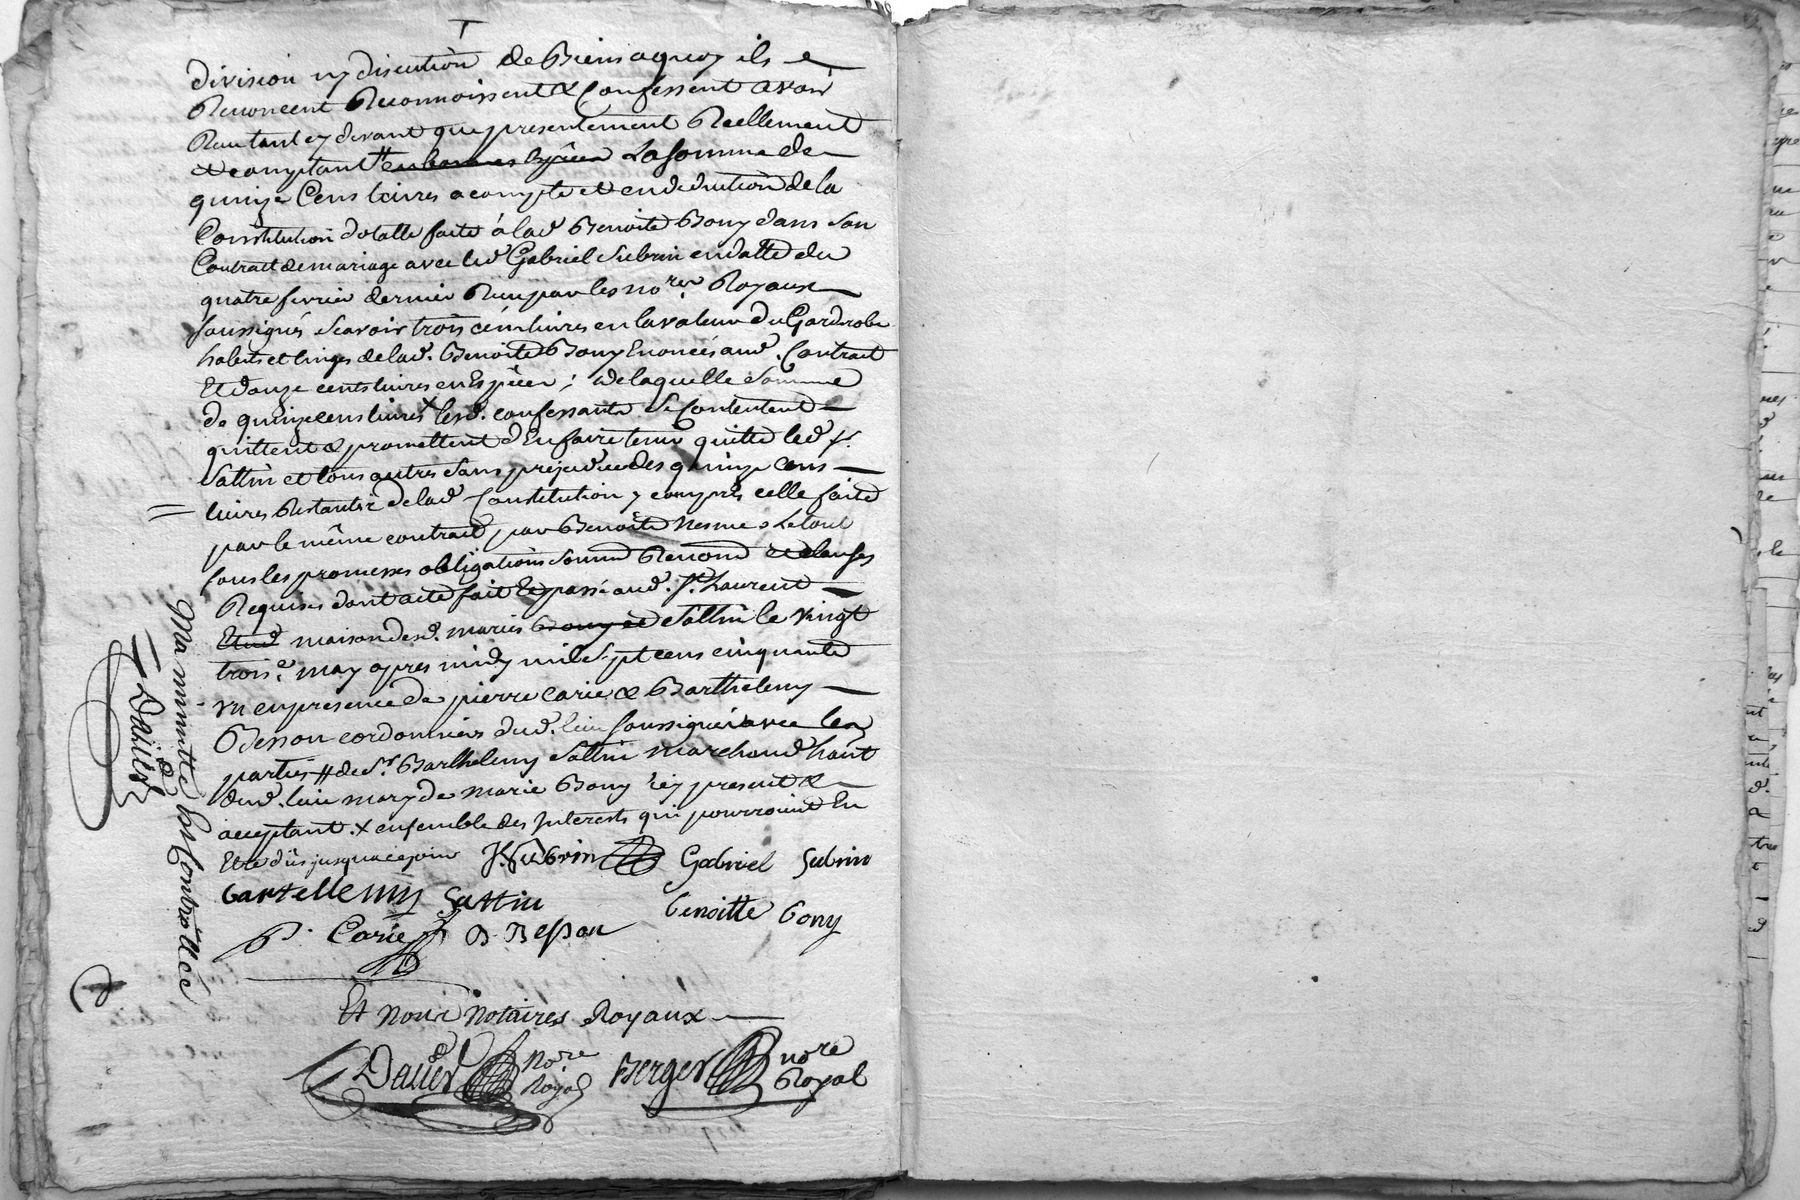 division ny discution de Biens aquoy ils
Renoncent Reconnoissent & Confessent avoir
Reçu tant cy devant que presentement Reellement
et comptant en bonnes Espèces La somme de
quinze Cens livres a compte et en deduction de la
Constitution dotalle faite à lad Benoite Bony dans son
Contract de mariage avec led Gabriel Subrin en datte du
quatre fevrier dernier Reçu par les no.res Royaux
soussignés Scavoir trois cens livres en la valeur du Garderobe
habits et linges de lad. Benoite Bony Enoncés aud. Contract
Et douze cents livres en Espèces ; de laquelle somme
de quinze cens livres lesd. confessants se Contentent
quittent & promettent d'En faire tenir quitte led Sr.
Sattin et tous autres sans prejudice des quinze cens
livres Restantes de lad Constitution y compris celle faite
par le même contract par Benoite Nesme Le tout
sous les promesses obligations soumd Renond et clauses
Requises dont acte fait Et passé aud. St. Laurent
Etud maison desd. mariés Bony et Sattin le vingt
trois.e may apres midy mil sept cens cinquante
un en presence de pierre Carie & Barthelemy
Besson cordonniers dud. lieu soussignés avec les
parties # de Sr. Barthelemy Sattin Marchand hant
dud. lieu mary de Marie Bony icy present &
acceptant. x ensemble des Interests qui pourroient En
Etre dûs jusqu'à ce jour J. Subrin Gabriel Subrin
bartellemy Sattin benoitte bony
P. Carie B. Besson
Et Nous Notaires Royaux
Dalier No.re Royal Berger no.re Royal
Ma minutte Est Controllée
Dalier